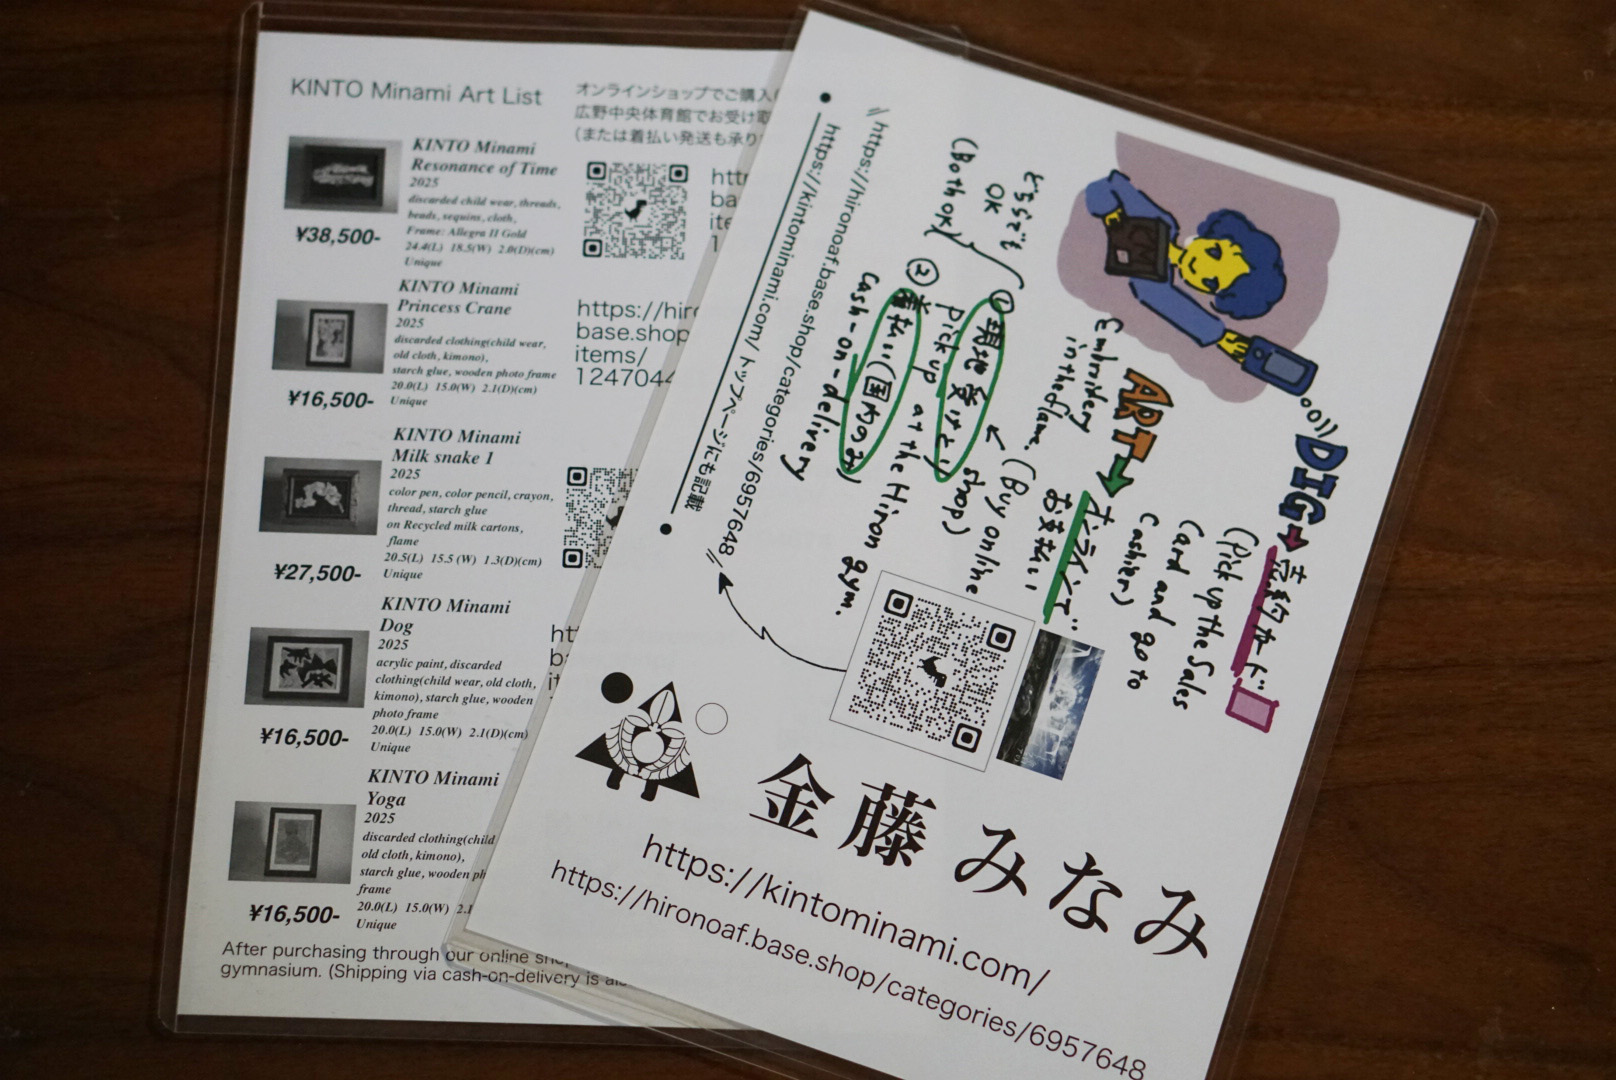 KINTO Minami Art List
オンラインショップでご購入
広野中央体育館でお受け取
（または着払い発送も承り
KINTO Minami
Resonance of Time
2025
discarded child wear, threads,
beads, sequins, cloth,
Frame: Allegra II Gold
24.4(L) 18.5(W) 2.0(D)(cm)
Unique
¥38,500-
KINTO Minami
Princess Crane
2025
discarded clothing(child wear,
old cloth, kimono),
starch glue, wooden photo frame
20.0(L) 15.0(W) 2.1(D)(cm)
Unique
¥16,500-
https://hiro
base.shop
items/
124704
KINTO Minami
Milk snake 1
2025
color pen, color pencil, crayon,
thread, starch glue
on Recycled milk cartons,
flame
20.5(L) 15.5 (W) 1.3(D)(cm)
Unique
¥27,500-
KINTO Minami
Dog
2025
acrylic paint, discarded
clothing(child wear, old cloth,
kimono), starch glue, wooden
photo frame
20.0(L) 15.0(W) 2.1(D)(cm)
Unique
¥16,500-
KINTO Minami
Yoga
2025
discarded clothing(child
old cloth, kimono),
starch glue, wooden ph
frame
20.0(L) 15.0(W) 2.1
Unique
¥16,500-
After purchasing through our online sho
gymnasium. (Shipping via cash-on-delivery is als
DIG→売約カード
(Pick up the Sales
Card and go to
Cashier)
ART→オンラインで
Embroidery
in the flame.
お支払い
(Buy online
shop)
どちらでも
OK
(Both ok)
①現地受けとり
Pick up at the Hiron gym.
②着払い(国内のみ)
Cash-on-delivery
https://hironoaf.base.shop/categories/6957648
https://kintominami.com/ トップページにも記載
金藤みなみ
https://kintominami.com/
https://hironoaf.base.shop/categories/6957648